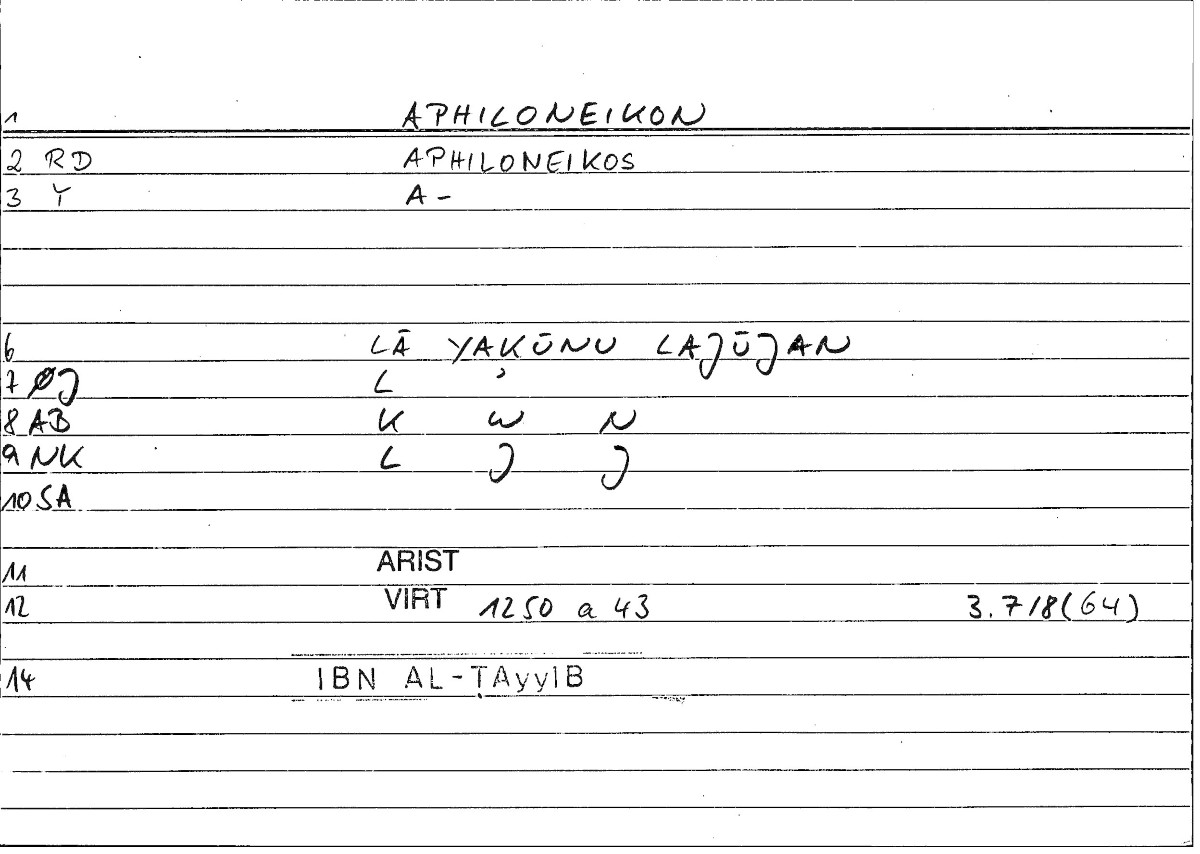 1 APHILONEIKON
2 RD APHILONEIKOS
3 Y A-
6 LĀ YAKŪNU LAJŪJAN
7 ØJ L ʾ
8 AB K W N
9 NK L J J
10 SA
11 ARIST
12 VIRT 1250 a 43 3.7/8(64)
14 IBN AL-ṬAyyIB